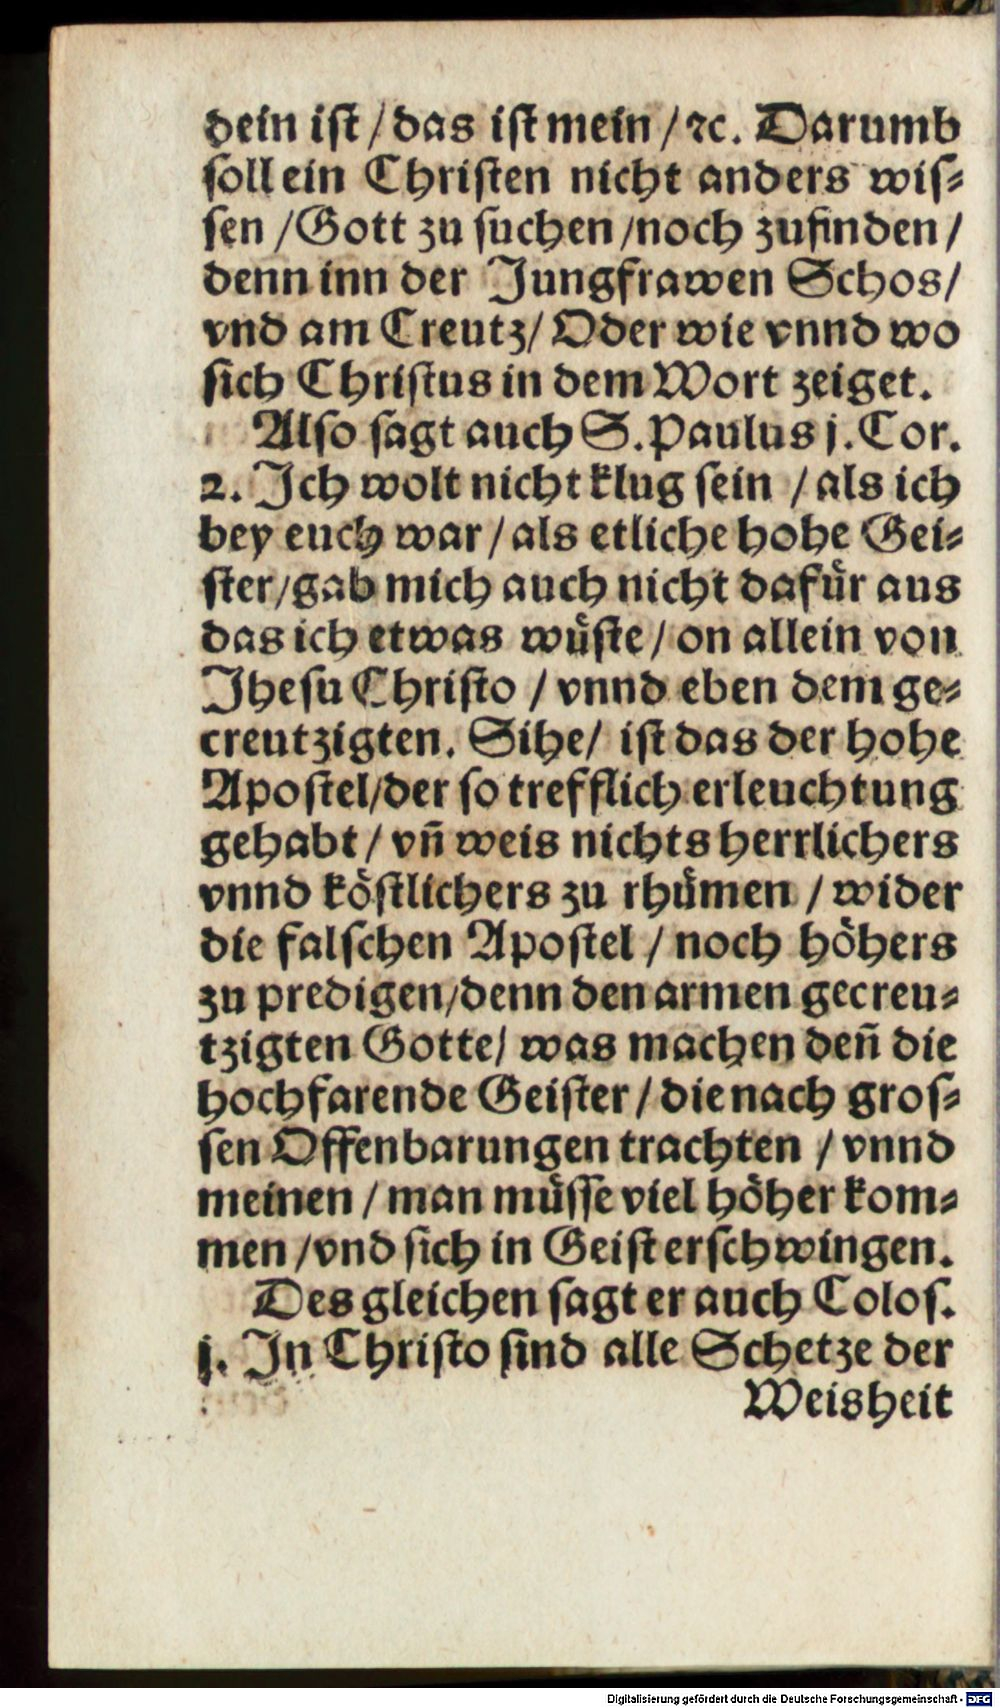 dein iſt / das iſt mein / ꝛc. Darumb
ſoll ein Chriſten nicht anders wiſ⸗
ſen / Gott zu ſuchen / noch zufinden /
denn inn der Jungfrawen Schos /
vnd am Creutz / Oder wie vnnd wo
ſich Chriſtus in dem Wort zeiget.
Alſo ſagt auch S. Paulus j. Cor.
2. Ich wolt nicht klug ſein / als ich
bey euch war / als etliche hohe Gei⸗
ſter / gab mich auch nicht dafuͤr aus
das ich etwas wuͤſte / on allein von
Jheſu Chriſto / vnnd eben dem ge⸗
creutzigten. Sihe / iſt das der hohe
Apoſtel / der ſo trefflich erleuchtung
gehabt / vn̄ weis nichts herrlichers
vnnd koͤſtlichers zu rhuͤmen / wider
die falſchen Apoſtel / noch hoͤhers
zu predigen / denn den armen gecreu⸗
tzigten Gotte / was machen den̄ die
hochfarende Geiſter / die nach groſ⸗
ſen Offenbarungen trachten / vnnd
meinen / man muͤſſe viel hoͤher kom⸗
men / vnd ſich in Geiſt erſchwingen.
Des gleichen ſagt er auch Coloſ.
j. In Chriſto ſind alle Schetze der
Weisheit
Digitalisierung gefördert durch die Deutsche Forschungsgemeinschaft - DFG